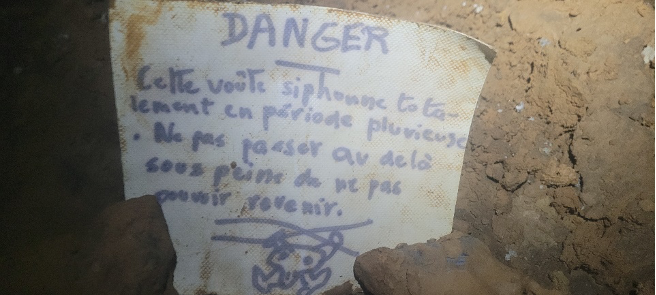 DANGER
Cette voûte siphonne tota-
lement en période pluvieuse
. Ne pas passer au delà
sous peine de ne pas
pouvoir revenir.